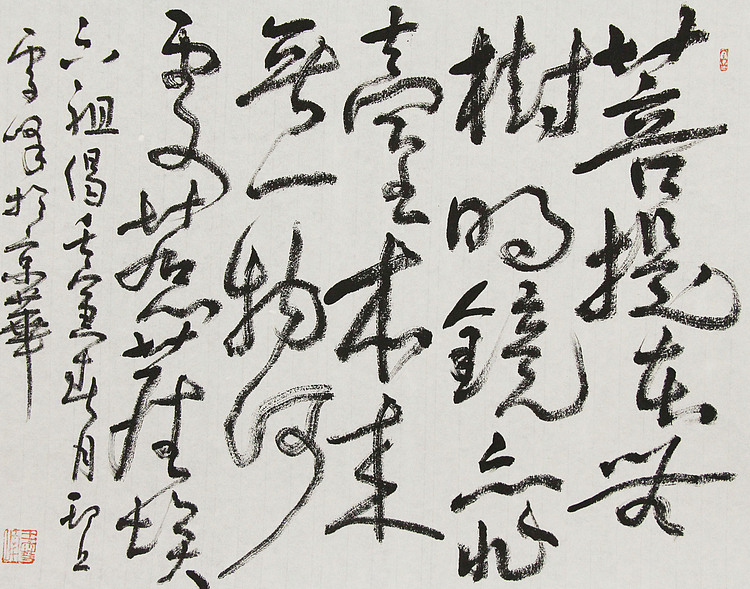 菩提本無
樹明鏡亦非
臺本来
無一物何
處惹塵埃
六祖偈春月
雪峰於京華